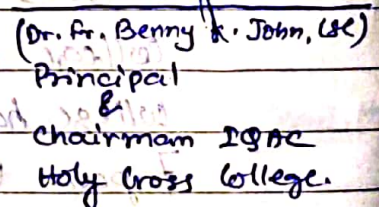 (Dr. Fr. Benny K. John, CSC)
Principal
&
Chairman IQAC
Holy Cross College.